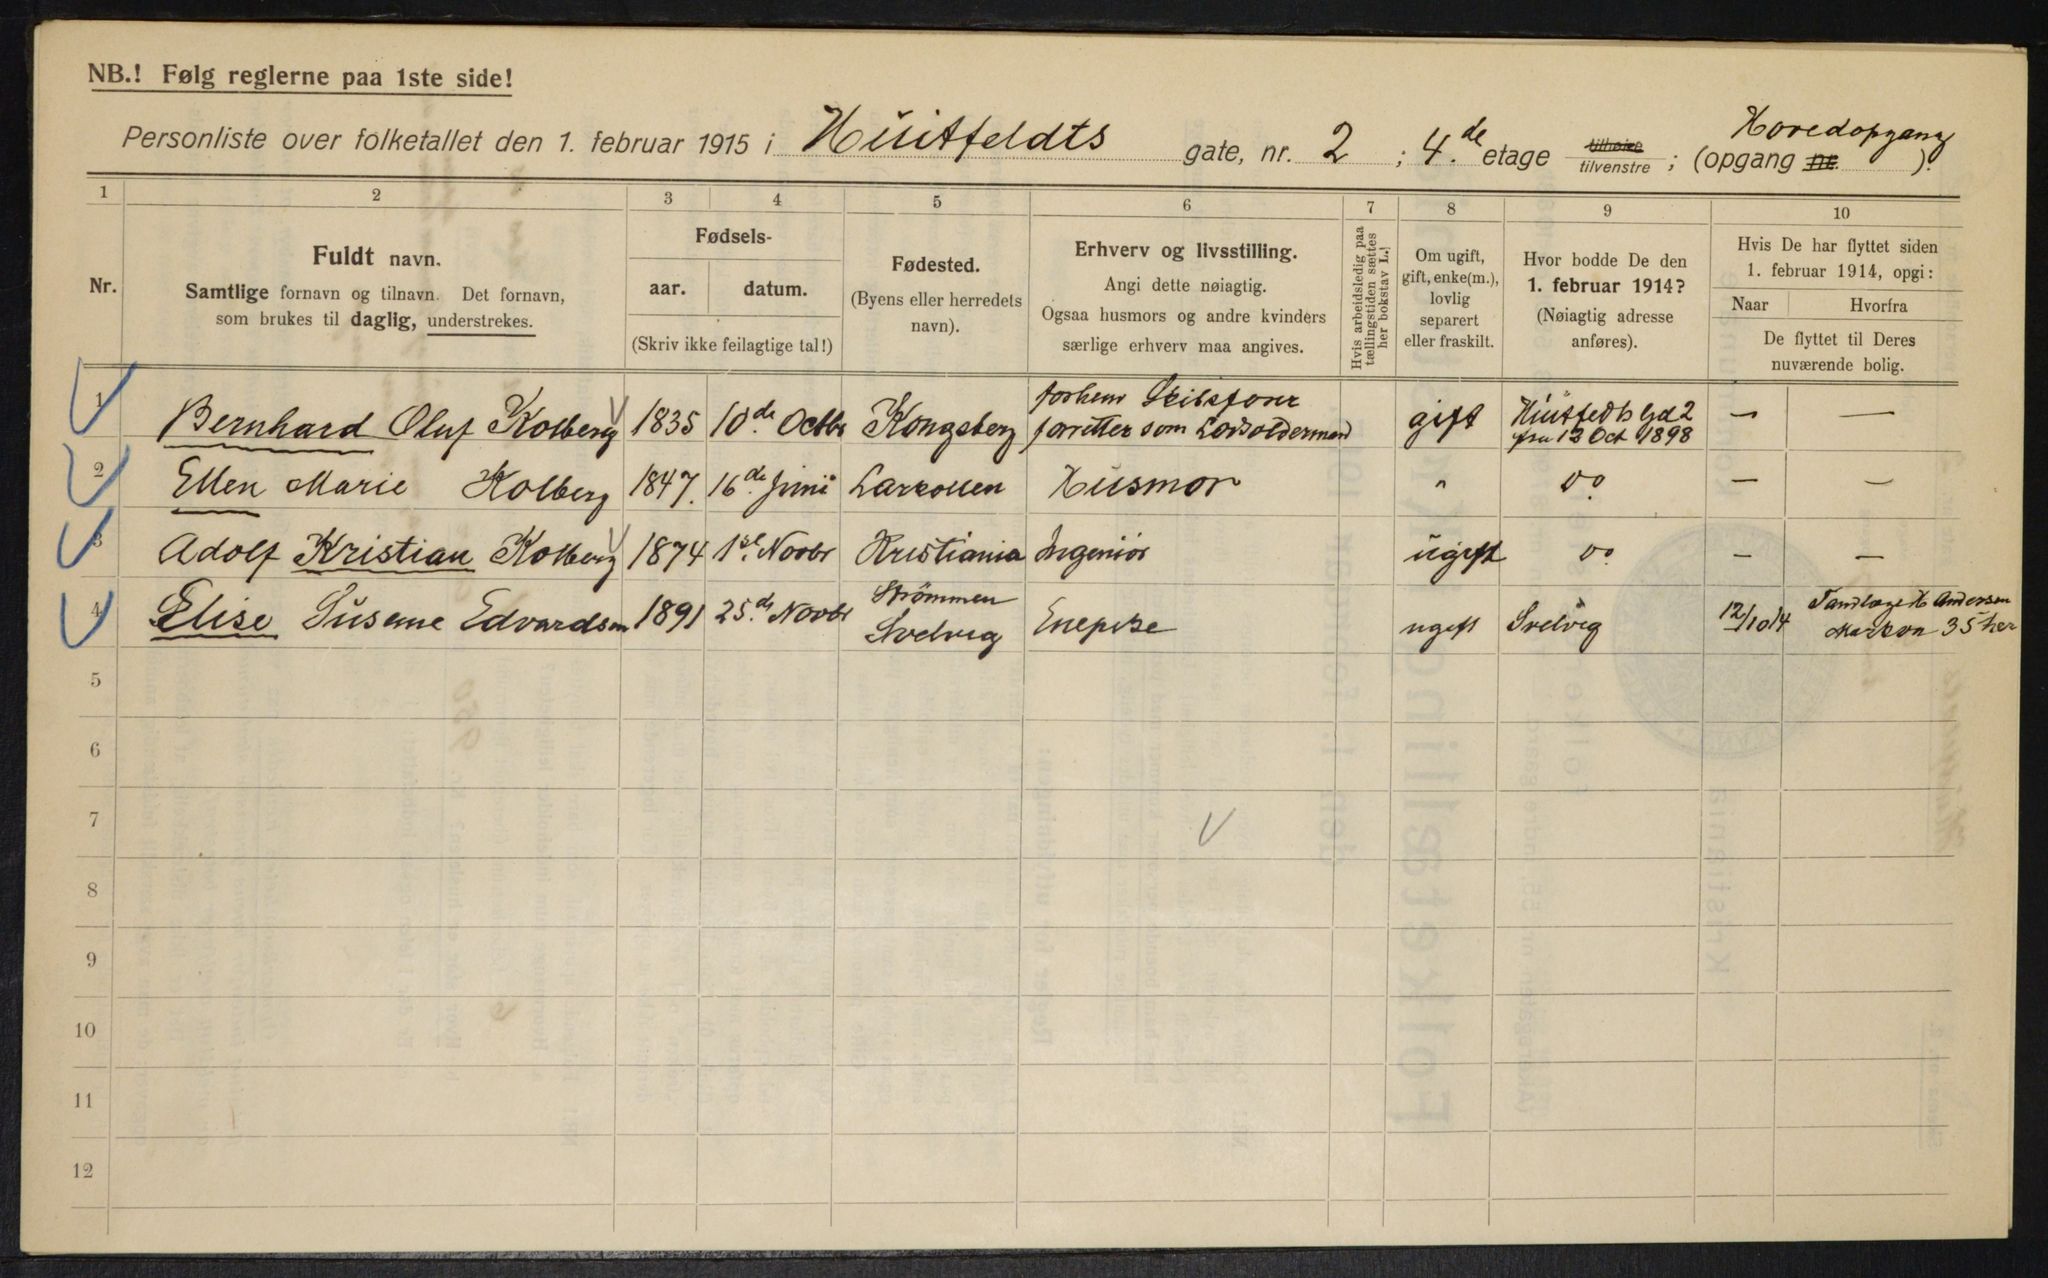 NB.! Følg reglerne paa 1ste side!
Personliste over folketallet den 1. februar 1915 i Huitfeldts gate, nr. 2 ; 4.de etage tilhøire tilvenstre ; (opgang nr. Hovedopgang ).
1 2 3 4 5 6 7 8 9 10
Nr.
Fuldt navn.
Samtlige fornavn og tilnavn. Det fornavn,
som brukes til daglig, understrekes.
Fødsels-
aar. datum.
(Skriv ikke feilagtige tal!)
Fødested.
(Byens eller herredets
navn).
Erhverv og livsstilling.
Angi dette nøiagtig.
Ogsaa husmors og andre kvinders
særlige erhverv maa angives.
Hvis arbeidsledig paa
tællingstiden sættes
her bokstav L.
Om ugift,
gift, enke(m.),
lovlig
separert
eller fraskilt.
Hvor bodde De den
1. februar 1914?
(Nøiagtig adresse
anføres).
Hvis De har flyttet siden
1. februar 1914, opgi:
Naar Hvorfra
De flyttet til Deres
nuværende bolig.
1 Bernhard Oluf Kolberg 1835 10de Octbr Kongsberg forhenv Skibsfører
forretter som Lodsoldermand gift Huitfedts Gd 2
fra 12 Oct 1898 — —
2 Ellen Marie Kolberg 1847. 16de Juni Larkollen Husmor " do — —
3 Adolf Kristian Kolberg 1874 1ste Novbr Kristiania Ingeniør ugift do — —
4 Elise Susene Edvardsen 1891 25de Novbr Strömmen
Svelvig Enepike ugift Svelvig 12/10 14 Tandlæge H Andersen
Markvn 35 her
5
6
7
8
9
10
11
12